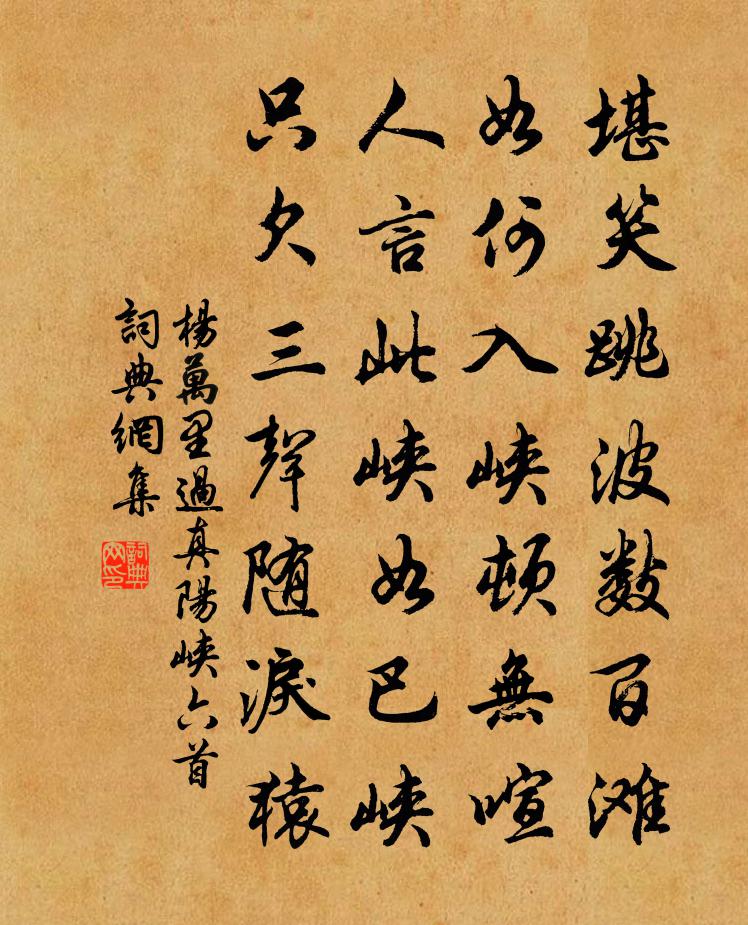 堪笑跳波数百滩
如何入峡顿無喧
人言此峡如巴峡
只欠三聲随淚猿
楊萬里過真陽峡六首
詞典網集
詞典網印